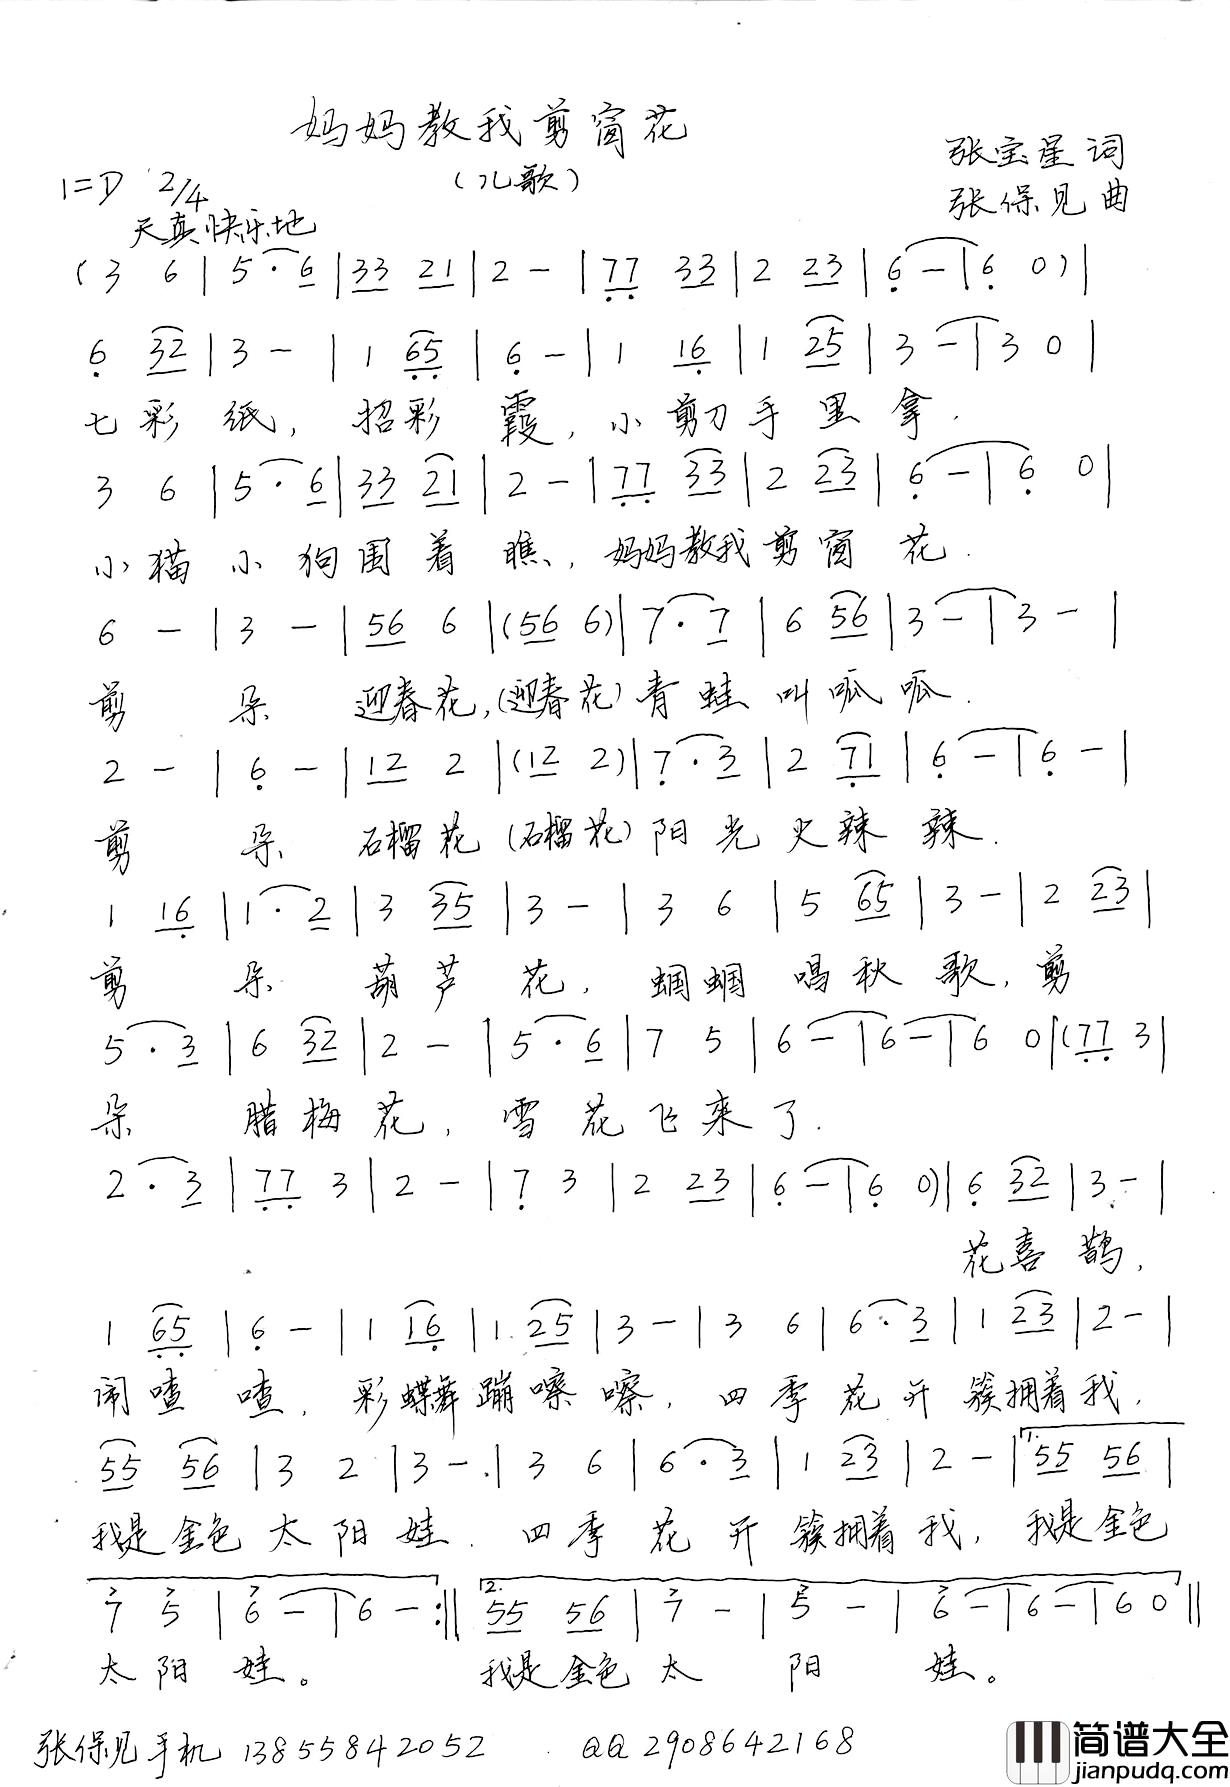 妈妈教我剪窗花
(儿歌)
张宝星 词
张保见 曲
1=D 2/4
天真快乐地
(3 6 | 5 · 6 | 33 21 | 2 - | 77 33 | 2 23 | 6 - | 6 0) |
6 32 | 3 - | 1 65 | 6 - | 1 16 | 1 25 | 3 - | 3 0 |
七彩纸, 招彩霞, 小剪刀手里拿.
3 6 | 5 · 6 | 33 21 | 2 - | 77 33 | 2 23 | 6 - | 6 0 |
小猫小狗围着瞧, 妈妈教我剪窗花.
6 - | 3 - | 56 6 | (56 6) | 7 · 7 | 6 56 | 3 - | 3 - |
剪朵迎春花,(迎春花)青蛙叫呱呱.
2 - | 6 - | 12 2 | (12 2) | 7 · 3 | 2 71 | 6 - | 6 - |
剪朵石榴花(石榴花)阳光火辣辣.
1 16 | 1 · 2 | 3 35 | 3 - | 3 6 | 5 65 | 3 - | 2 23 |
剪朵葫芦花, 蝈蝈唱秋歌, 剪
5 · 3 | 6 32 | 2 - | 5 · 6 | 7 5 | 6 - | 6 - | 6 0 | (77 3 |
朵腊梅花, 雪花飞来了.
2 · 3 | 77 3 | 2 - | 7 3 | 2 23 | 6 - | 6 0) | 6 32 | 3 - |
花喜鹊,
1 65 | 6 - | 1 16 | 1 25 | 3 - | 3 6 | 6 · 3 | 1 23 | 2 - |
闹喳喳, 彩蝶舞蹦嚓嚓, 四季花开簇拥着我,
55 56 | 3 2 | 3 - | 3 6 | 6 · 3 | 1 23 | 2 - | 1. 55 56 |
我是金色太阳娃. 四季花开簇拥着我, 我是金色
7 5 | 6 - | 6 - :‖ 2. 55 56 | 7 - | 5 - | 6 - | 6 - | 6 0 ‖
太阳娃。 我是金色太阳娃。
张保见手机 13855842052 QQ 2908642168
简谱大全
jianpudq.com